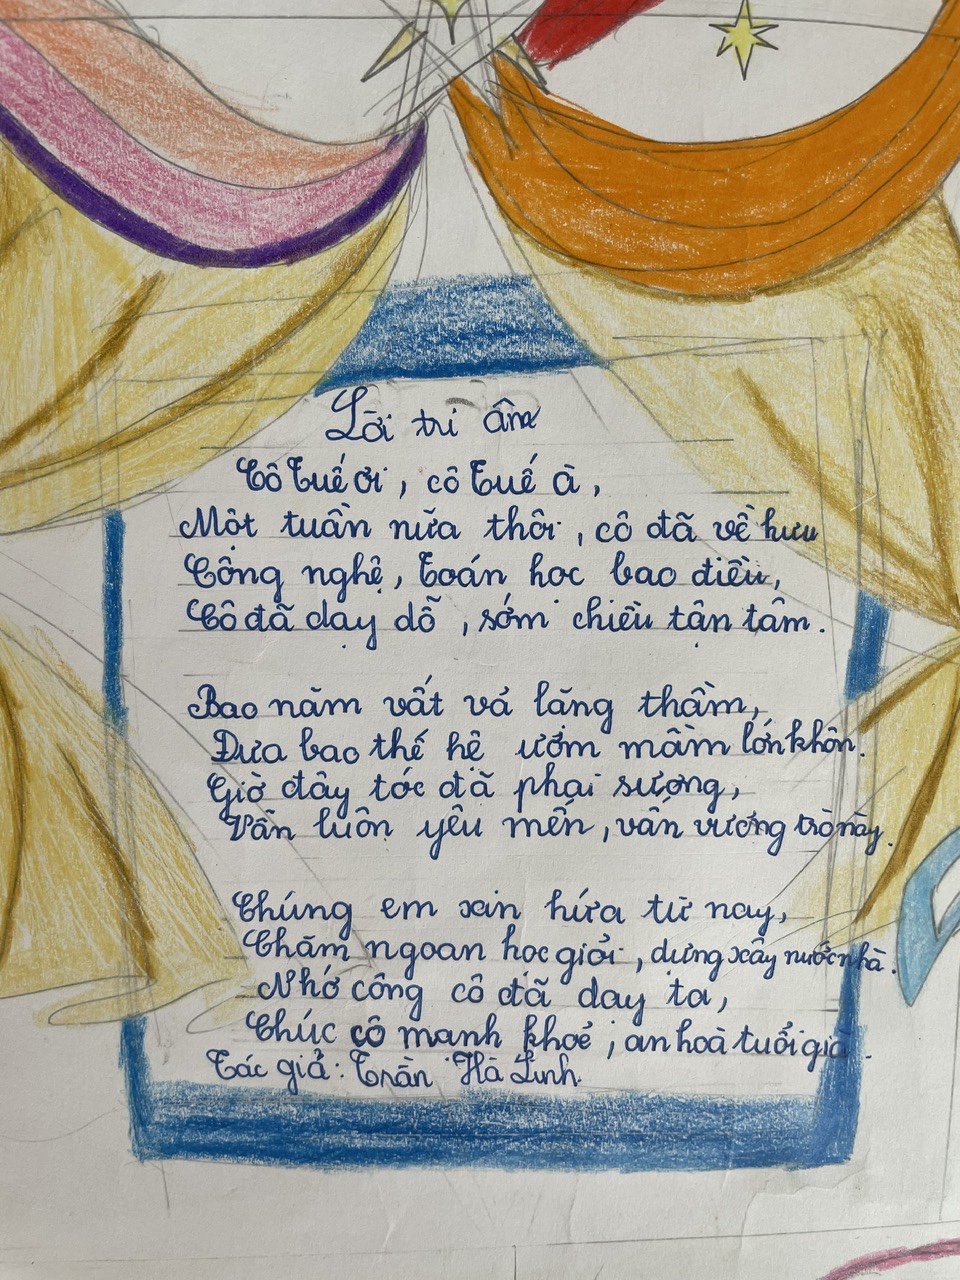 Lời tri ân
Cô Tuế ơi, cô Tuế à,
Một tuần nữa thôi, cô đã về hưu
Công nghệ, Toán học bao điều,
Cô đã dạy dỗ, sớm chiều tận tâm.
Bao năm vất vả lặng thầm,
Đưa bao thế hệ ươm mầm lớn khôn.
Giờ đây tóc đã phai sương,
Vẫn luôn yêu mến, vấn vương trò này.
Chúng em xin hứa từ nay,
Chăm ngoan học giỏi, dựng xây nước nhà.
Nhớ công cô đã dạy ta,
Chúc cô mạnh khoẻ, an hoà tuổi già.
Tác giả: Trần Hà Linh